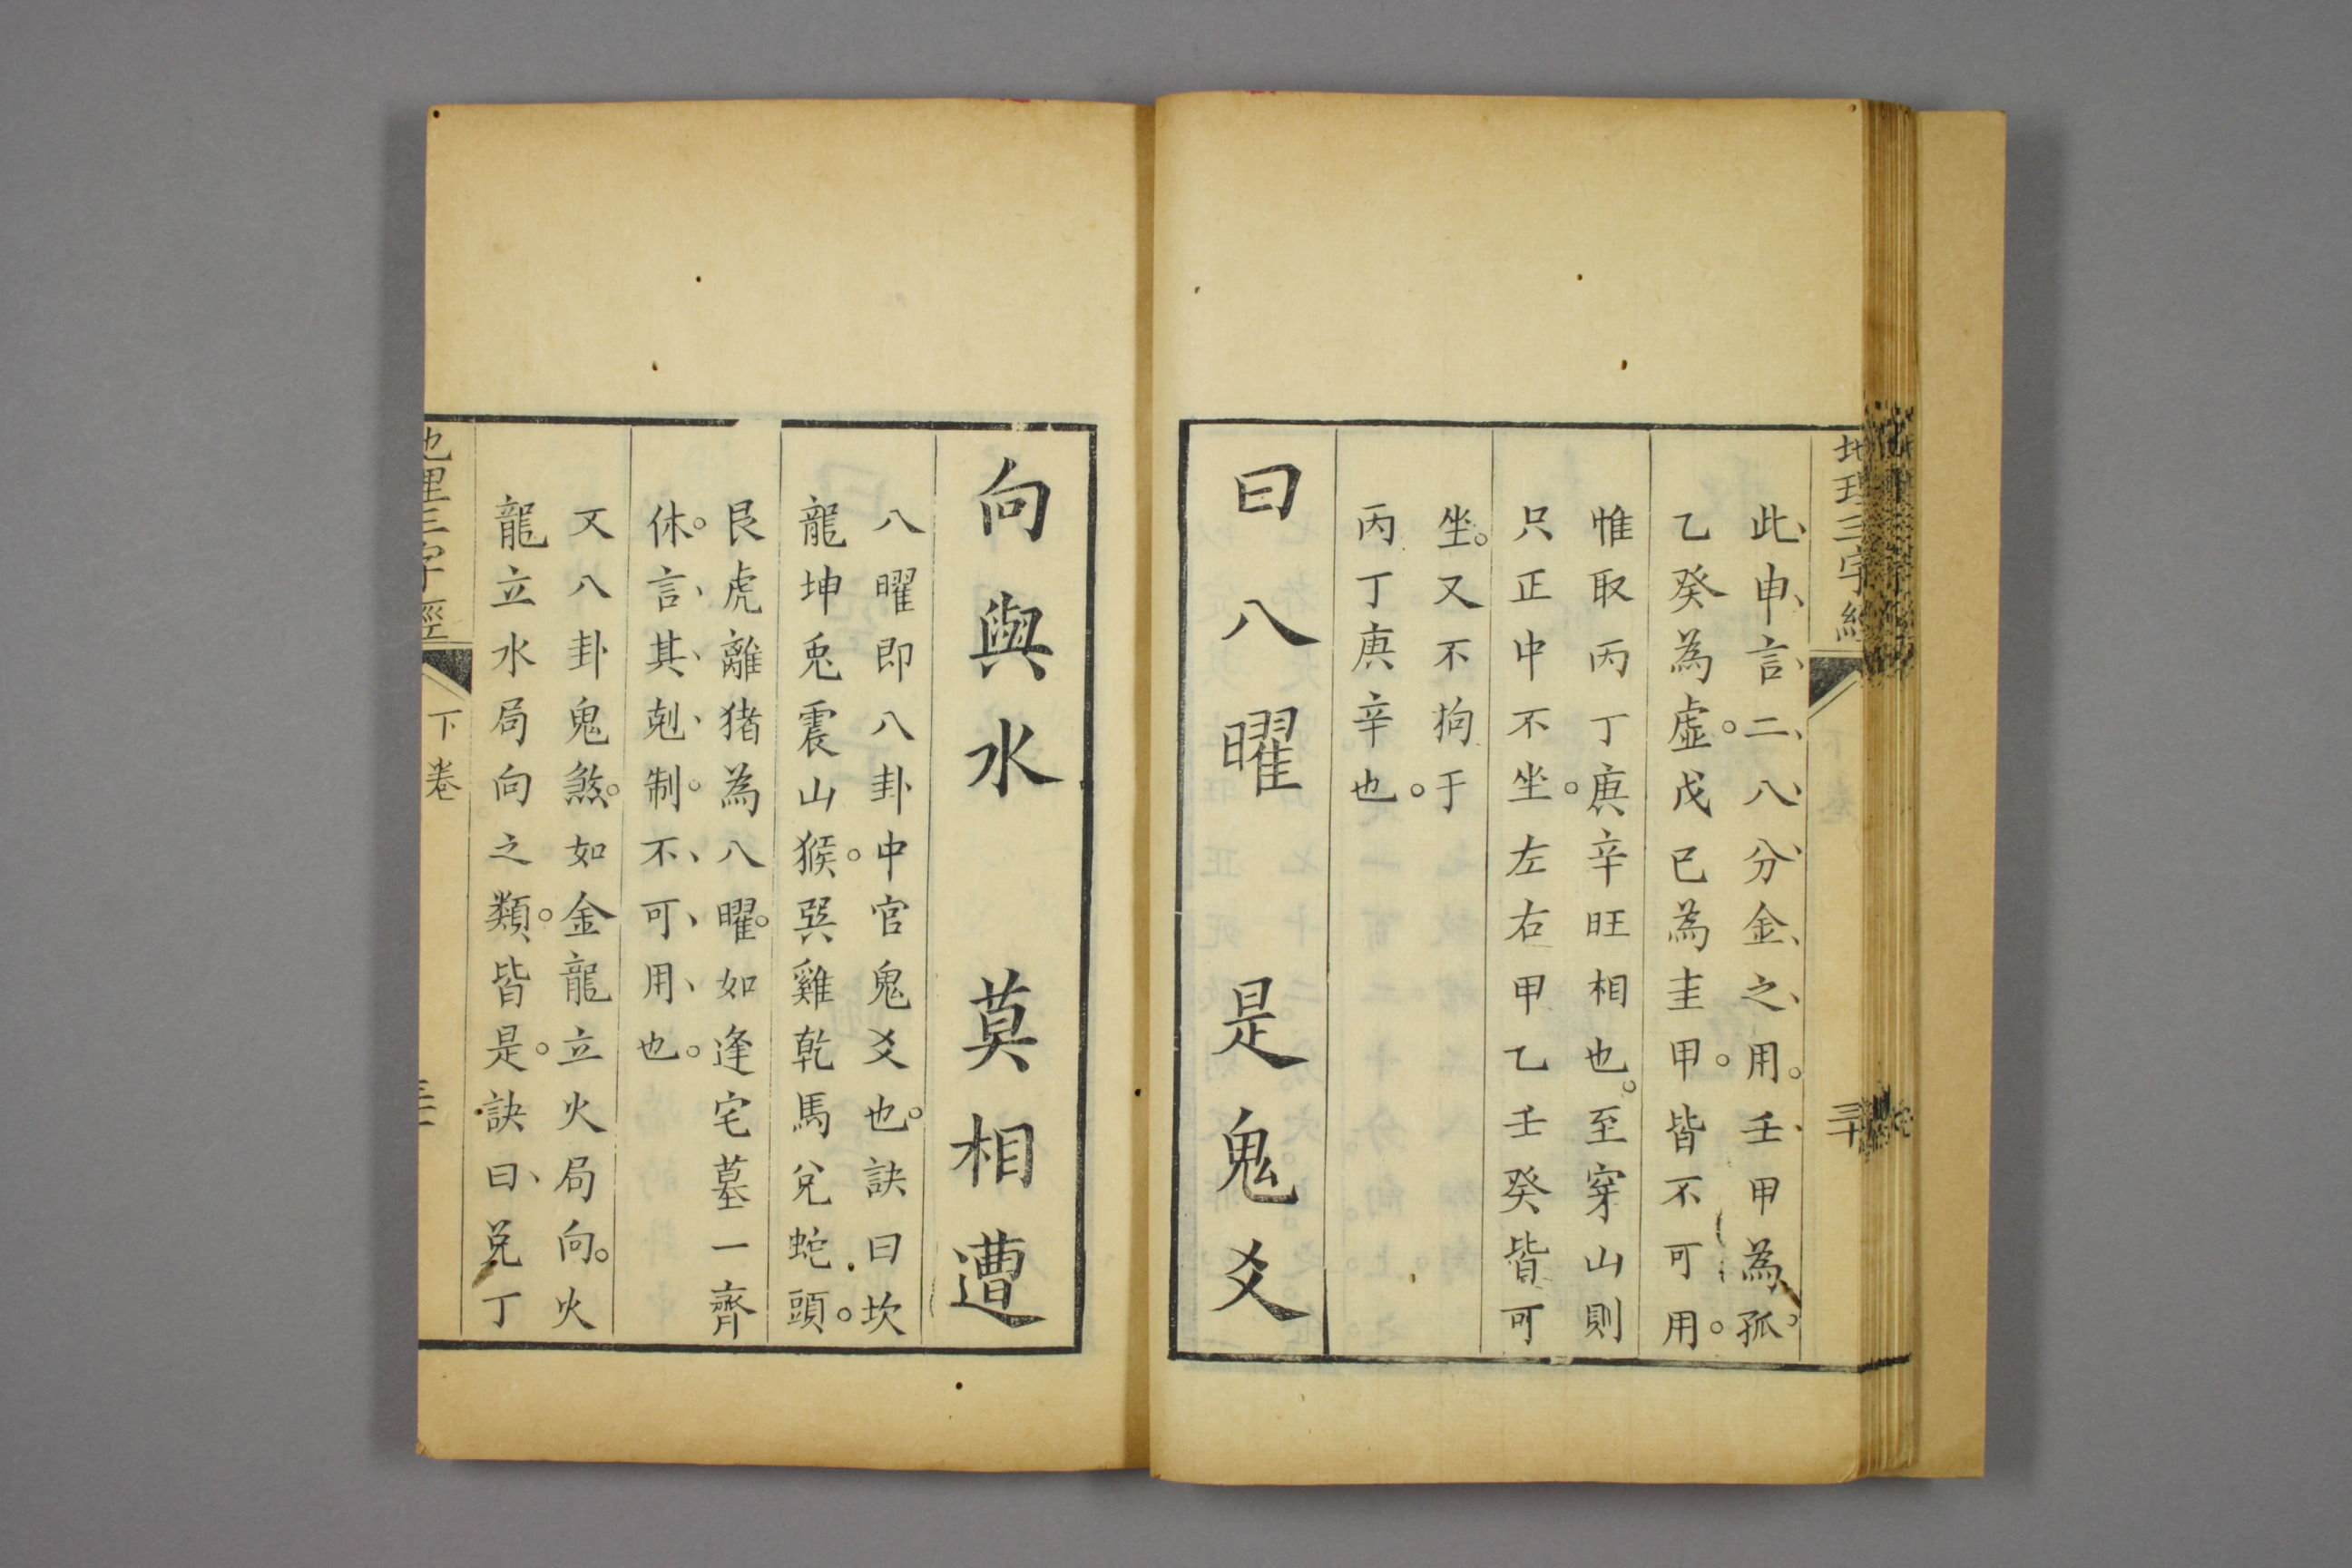 地理三字經
三十
此申言二八分金之用。壬甲為孤。
乙癸為虛。戊已為圭甲。皆不可用。
惟取丙丁庚辛旺相也。至穿山則
只正中不坐。左右甲乙壬癸皆可
坐。又不拘于
丙丁庚辛也。
曰八曜　是鬼爻
向與水　莫相遭
八曜即八卦中官鬼爻也。訣曰坎
龍坤兎震山猴。巽雞乾馬兌蛇頭。
艮虎離猪為八曜。如逢宅墓一齊
休。言其剋制。不可用也。
又八卦鬼煞。如金龍立火局向。火
龍立水局向之類。皆是。訣曰、兌丁
地理三字經
下卷